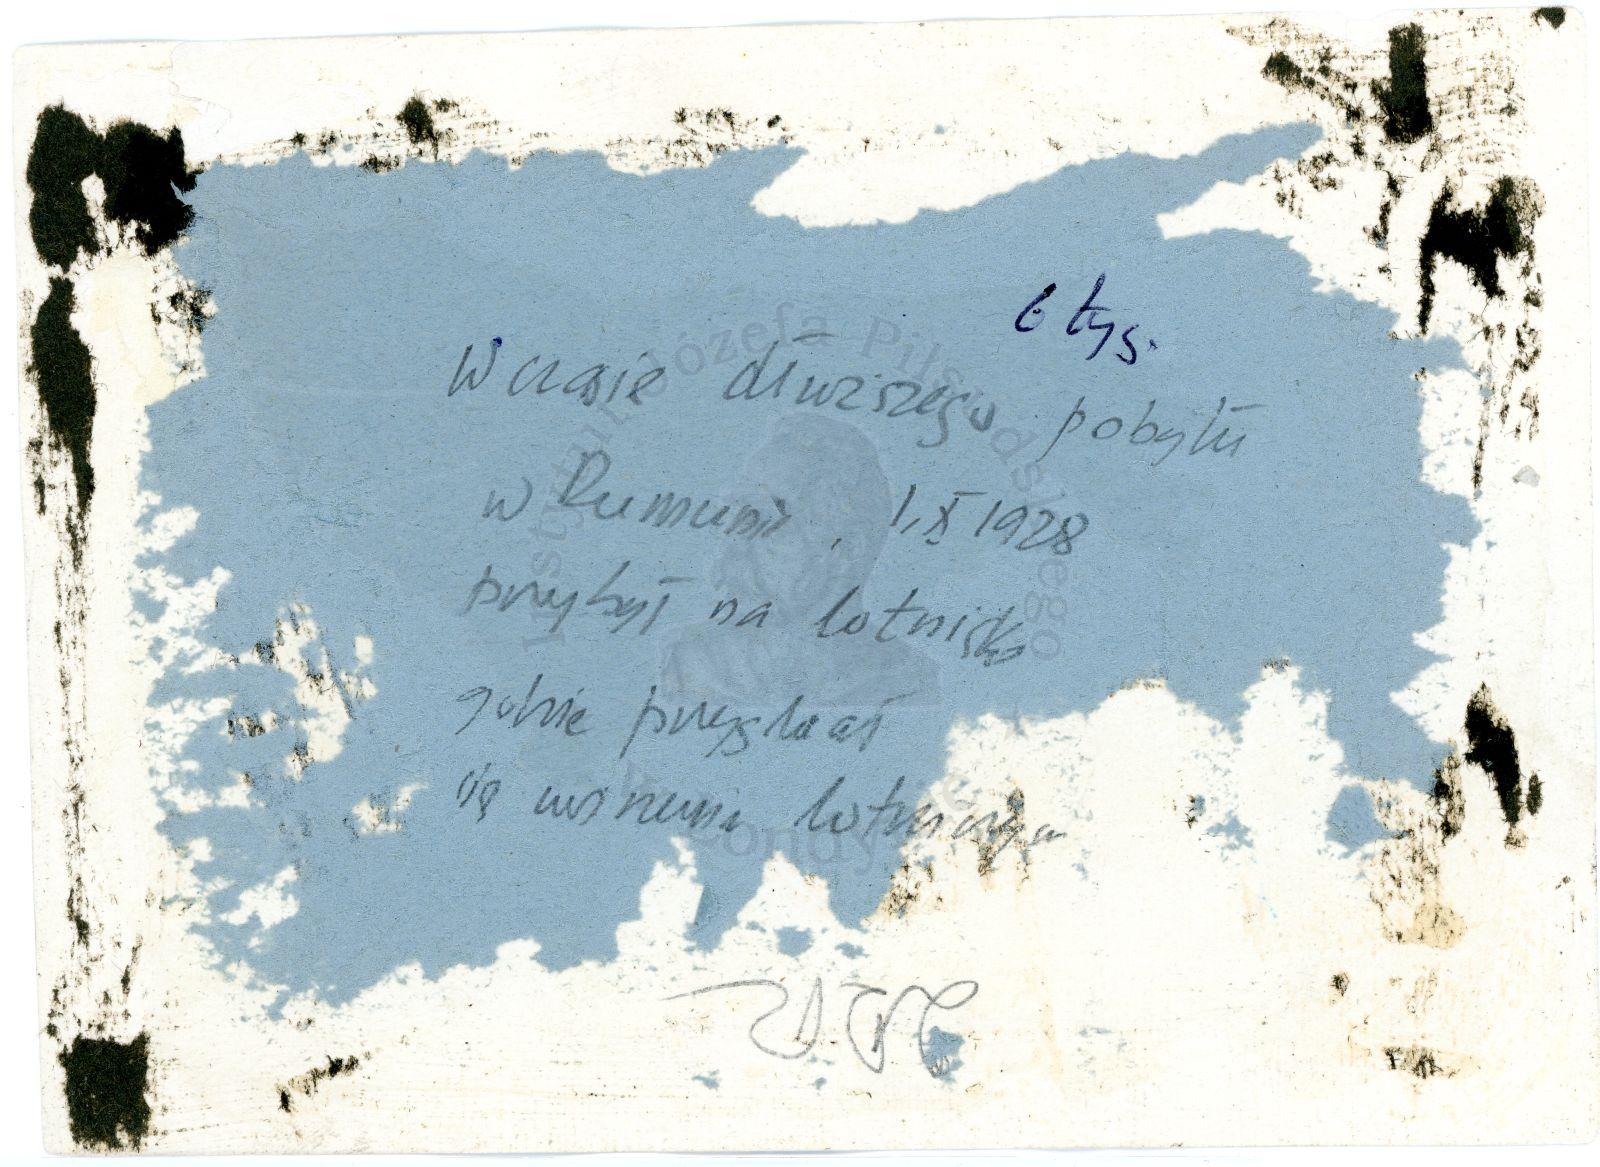 6 tys.
W czasie dłuższego pobytu
w Rumunii, 1.X 1928
przybył na lotnisko
gdzie przyglądał
się lotniczym
Instytut Józefa Piłsudskiego
w Londynie